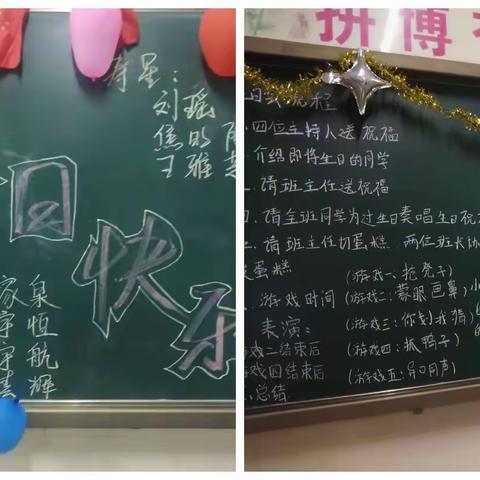 寿星：
刘瑶
日
快
乐
家泉
宇恒
航
辉
拼博
流程
四位主持人送祝福
介绍即将生日的同学
请班主任送祝福
四、请全班同学为过生日奏唱生日祝
请班主任切蛋糕 两位班长协
蛋糕 (游戏一、抢凳子)
游戏时间 (游戏二：蒙眼画鼻)
表演： (游戏三：你划我猜)
游戏二结束后 (游戏四：抓鸭子)
游戏四结束后 (游戏五：异口同声)
总结